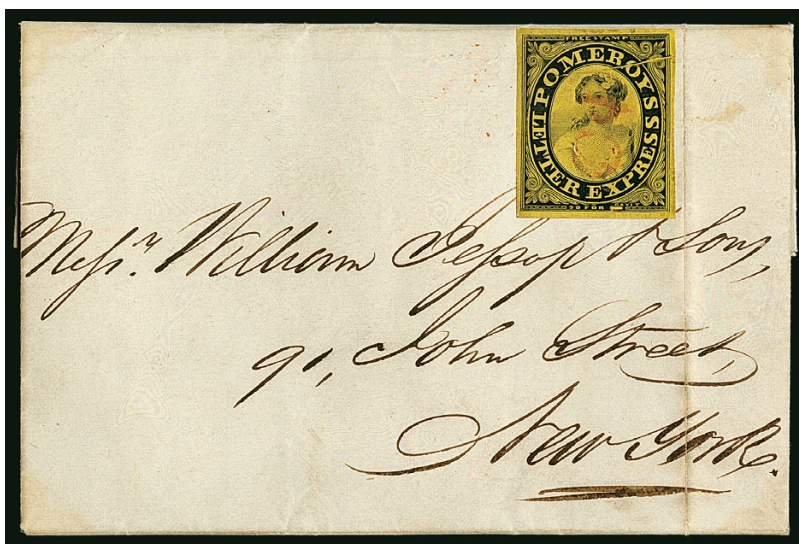 FREE STAMP
POMEROYS
LETTER EXPRESS
20 FOR
Messrs. William Jessop & Sons,
91, John Street,
New York.